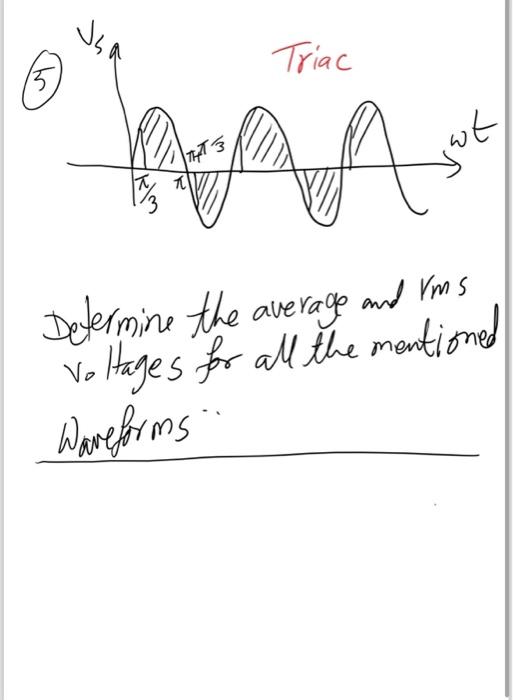 Vs
Triac
5
π+π/3
ωt
π/3
π
Determine the average and rms
voltages for all the mentioned
Waveforms